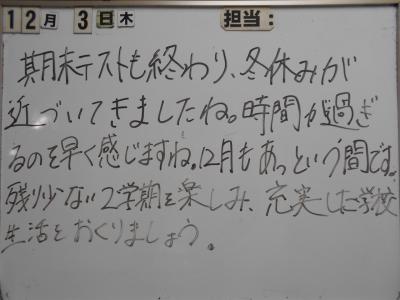 12月 3日木 担当:
期末テストも終わり、冬休みが
近づいてきましたね。時間が過ぎ
るのを早く感じますね。12月もあっという間です。
残り少ない2学期を楽しみ、充実した学校
生活をおくりましょう。